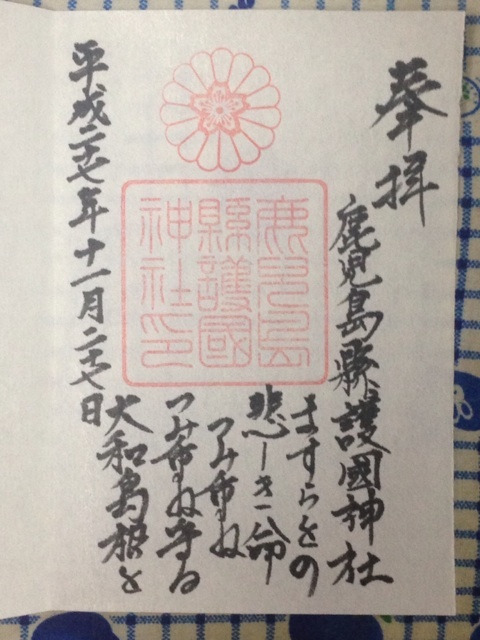 奉拝
鹿児島縣護國神社
ますらをの
悲しき命
つみ重ね
つみ重ね守る
大和島根を
鹿児島
縣護國
神社印
平成二十七年十一月二十七日